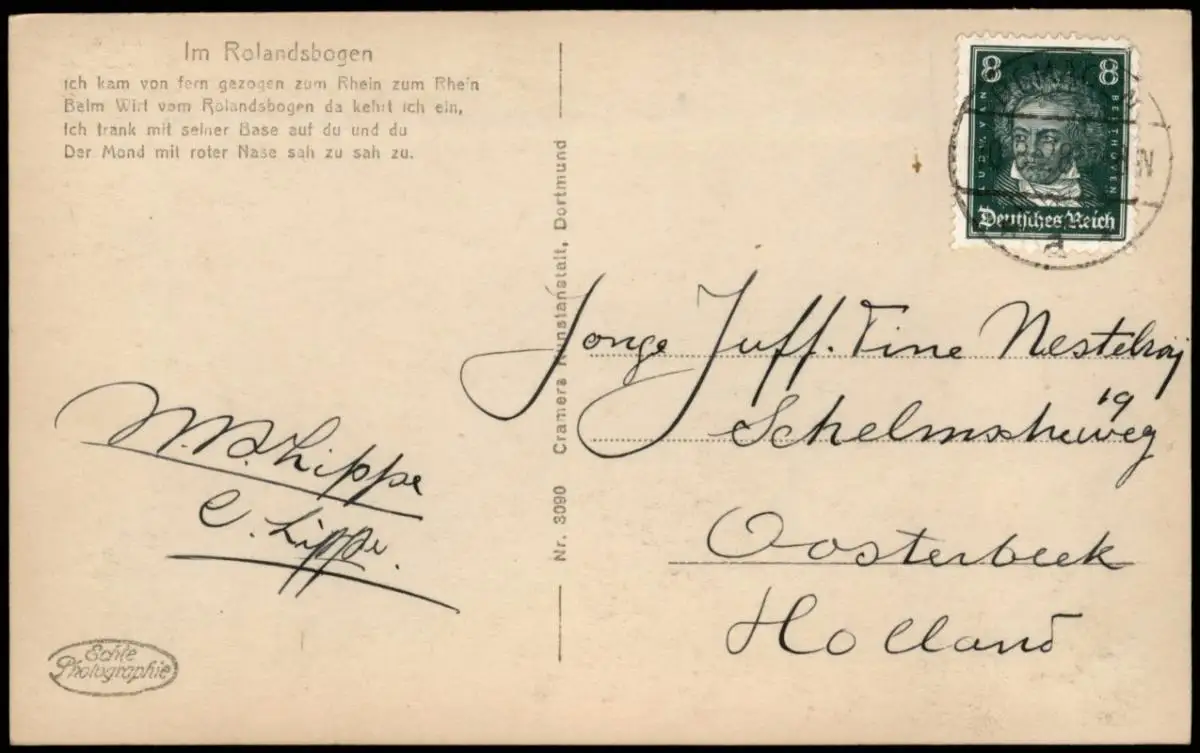 Im Rolandsbogen
Ich kam von fern gezogen zum Rhein zum Rhein
Beim Wirt vom Rolandsbogen da kehrt ich ein,
Ich trank mit seiner Base auf du und du
Der Mond mit roter Nase sah zu sah zu.
Nr. 3090 Cramers Kunstanstalt, Dortmund
8 8
LUDW. VAN
BEETHOVEN
Deutsches Reich
a
Jonge Juff. Tine
19
Oosterbeek
Holland
W. B. Lippe
C. Lippe.
Echte
Photographie